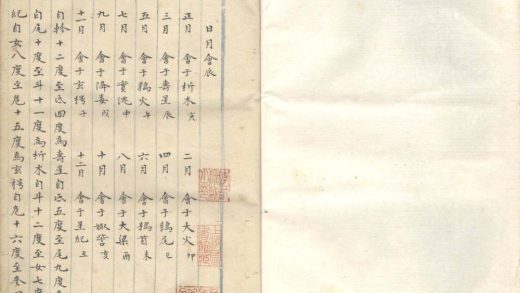 日月會辰
正月 會于析木寅 二月 會于大火卯
三月 會于壽星辰 四月 會于鶉尾巳
五月 會于鶉火午 六月 會于鶉首未
七月 會于實沈申 八月 會于大梁酉
九月 會于降婁戌 十月 會于娵訾亥
十一月 會于玄枵子 十二月 會于星紀丑
自軫十二度至氐四度為壽星自氐五度至尾九度
自尾十度至斗十一度為析木自斗十二度至女七度
紀自女八度至危十五度為玄枵自危十六度至奎